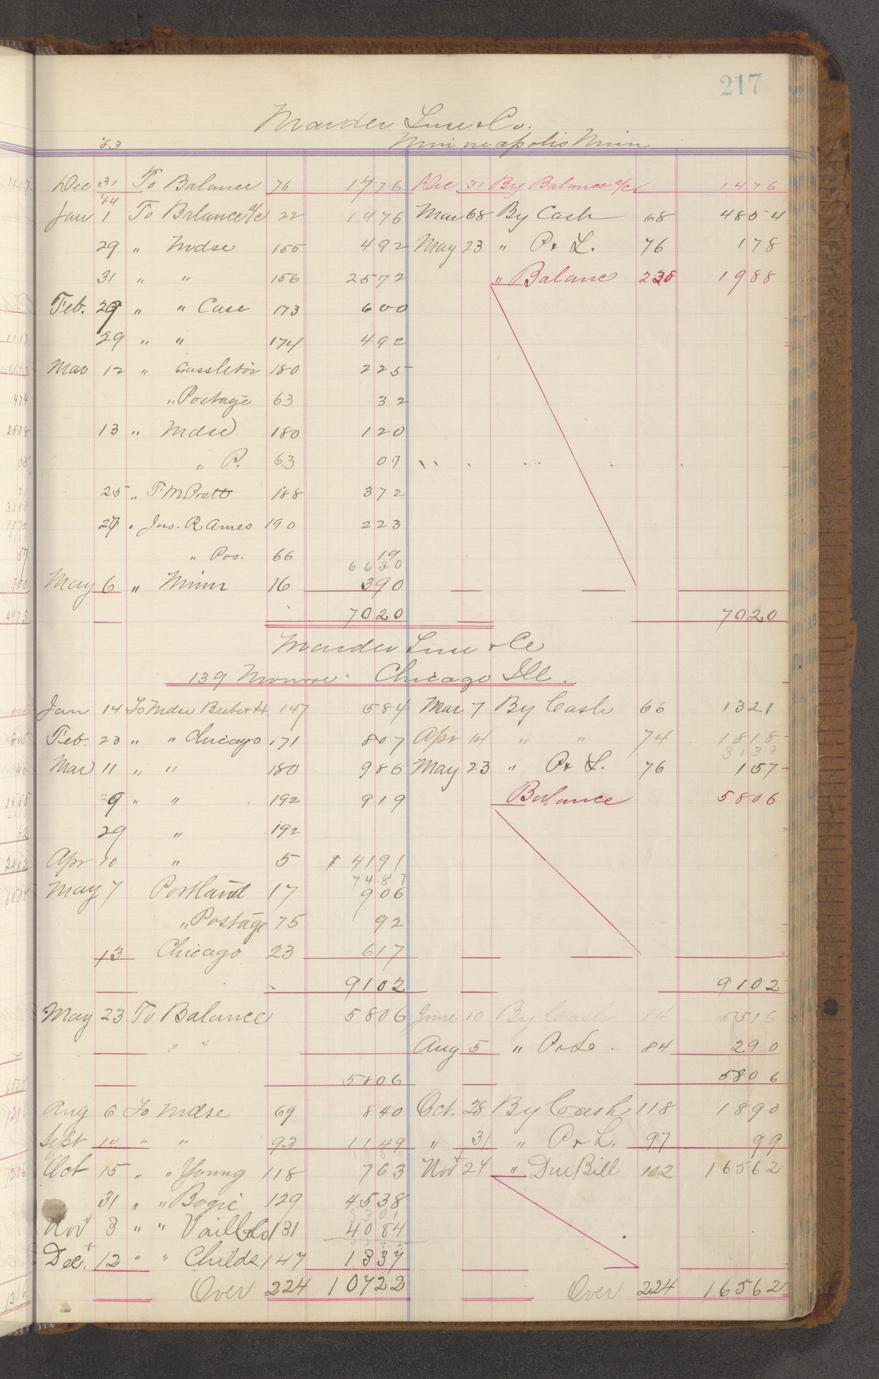 217
Marder Luse & Co.
Minneapolis Minn
83
Dec 31 To Balance 76 1476 Dec 31 By Balance a/c 1476
'84
Jan 1 To Balance a/c 22 1476 Mar 68 By Cash 68 4854
29 " Mdse 155 492 May 23 " P & L. 76 178
31 " " 156 2572 " Balanc 238 1988
Feb. 29 " " Case 173 600
29 " " 174 492
Mar 12 " 180 225
" Postage 63 32
13 " Mdse 180 120
" P. 63 07
25 " T. M Pratt 188 372
27 " Jno. R Ames 190 223
" Pos. 66 19
6630
May 6 " Minn 76 390
7020 7020
Marder Luse & Co
139 Monroe. Chicago Ill.
Jan 14 To Mdse 147 584 Mar 7 By Cash 66 1321
Feb. 23 " " Chicago 171 807 Apr 14 " " 74 1818
3139
Mar 11 " " 180 986 May 23 " P & L. 76 157
29 " " 192 919 Balance 5806
29 " 192
Apr 10 " 5 4191
7487
May 7 Portland 17 906
" Postage 75 92
13 Chicago 23 617
9102 9102
May 23 To Balance 5806 June 10 By Cash 84 5516
" " Aug 5 " P & L. 84 290
5806 5806
Aug 6 To Mdse 69 840 Oct. 28 By Cash 118 1890
Sept 10 " " 93 1149 " 31 " P & L. 97 99
Oct 15 " " Young 118 763 Nov 24 " Due Bill 102 16562
31 " " Bogie 129 4538
Nov 3 " " Vaill & Co 131 4084
Dec. 12 " " Childs 147 1337
Over 224 10722 Over 224 16562